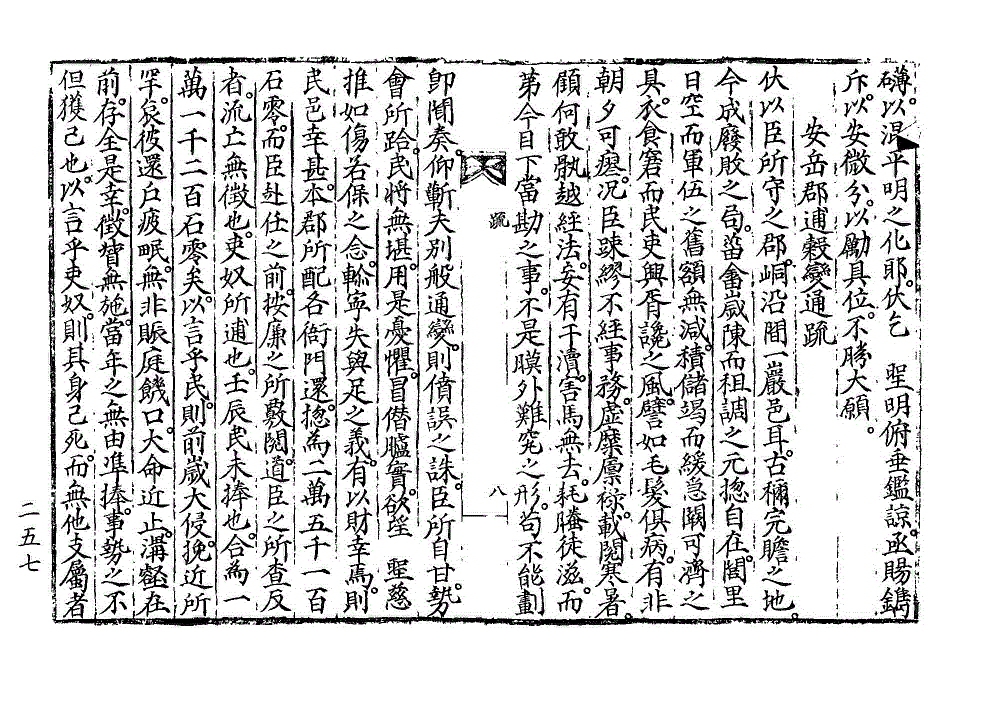 礴。以混平明之化耶。伏乞 聖明俯垂鑑諒。亟賜鐫
斥。以安微分。以勵具位。不勝大願。
安岳郡逋穀變通疏
伏以臣所守之郡。峒沿間一嚴邑耳。古稱完贍之地。
今成廢敗之局。菑畬歲陳而租調之元摠自在。閭里
日空而軍伍之舊額無減。積儲竭而緩急闕可濟之
具。衣食窘而民吏興胥讒之風。譬如毛髮俱病。有非
朝夕可瘳。况臣疎繆不經事務。虛縻廩祿。載閱寒暑。
顧何敢骩越經法。妄有干瀆。害馬無去。耗螣徒滋。而
第今目下當勘之事。不是膜外難究之形。苟不能劃
疏
八
卽聞奏。仰蘄夫別般通變。則僨誤之誅。臣所自甘。勢
會所跲。民將無堪。用是憂懼。冒僭臚實。欲望 聖慈
推如傷若保之念。輸寧失與足之義。有以財幸焉。則
民邑幸甚。本郡所配各衙門還摠爲二萬五千一百
石零。而臣赴任之前。按廉之所覈閱。道臣之所查反
者。流亡無徵也。吏奴所逋也。壬辰民未捧也。合爲一
萬一千二百石零矣。以言乎民。則前歲大侵。挽近所
罕。哀彼還戶疲氓。無非賑庭饑口。大命近止。溝壑在
前。存全是幸。徵督無施。當年之無由準捧。事勢之不
但獲已也。以言乎吏奴。則其身已死。而無他支屬者
二五七